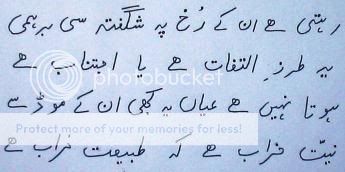 رہتی ہے ان کے رُخ پہ شگفتہ سی برہمی
یہ طرزِ التفات ہے یا اجتناب ہے
photobucket
ہوتا نہیں ہے عیاں یہ کبھی ان کے موڈ سے
Protect more of your memories for less!
نیّت خراب ہے کہ طبیعت خراب ہے